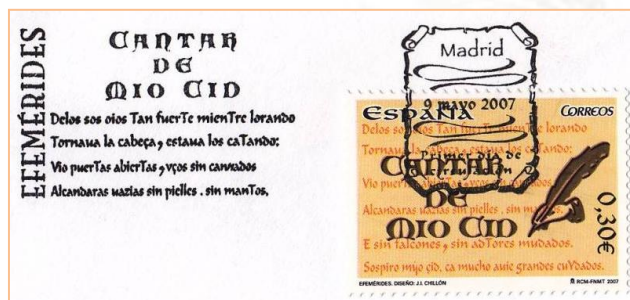 EFEMÉRIDES
CANTAR
DE
MIO CID
Delos sos oios Tan fuerTe mienTre lorando
Tornaua la cabeça, estaua los caTando:
Vio puerTas abierTas, vços sin cannados
Alcandaras uazias sin pielles. sin manTos,
Madrid
9 mayo 2007
Primer día de
Circulación
España
CORREOS
Delos sos oios Tan fuerTe mienTre lorando
Tornaua la cabeça, estaua los caTando:
Vio puerTas abierTas, vços sin cannados
Alcandaras uazias sin pielles. sin manTos,
E sin falcones, sin adTores mudados.
Sospiro myo çid, ca mucho auie grandes cuYdados.
CANTAR
DE
MIO CID
0,30€
EFEMÉRIDES. DISEÑO: J.I. CHILLÓN
RCM-FNMT 2007